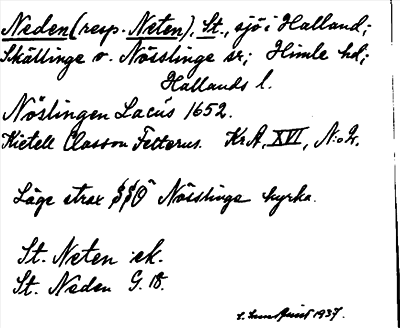 Neden (resp. Neten), St., sjö i Halland;
Skällinge o. Nösslinge sr; Himle hd;
Hallands l.
Nöslingen Lacus 1652.
Kietell Classon Felterus. KrA, XVI, N:o 2.
Läge strax SSO Nösslinge kyrka.
St. Neten ek.
St. Neden G. 18.
1937.